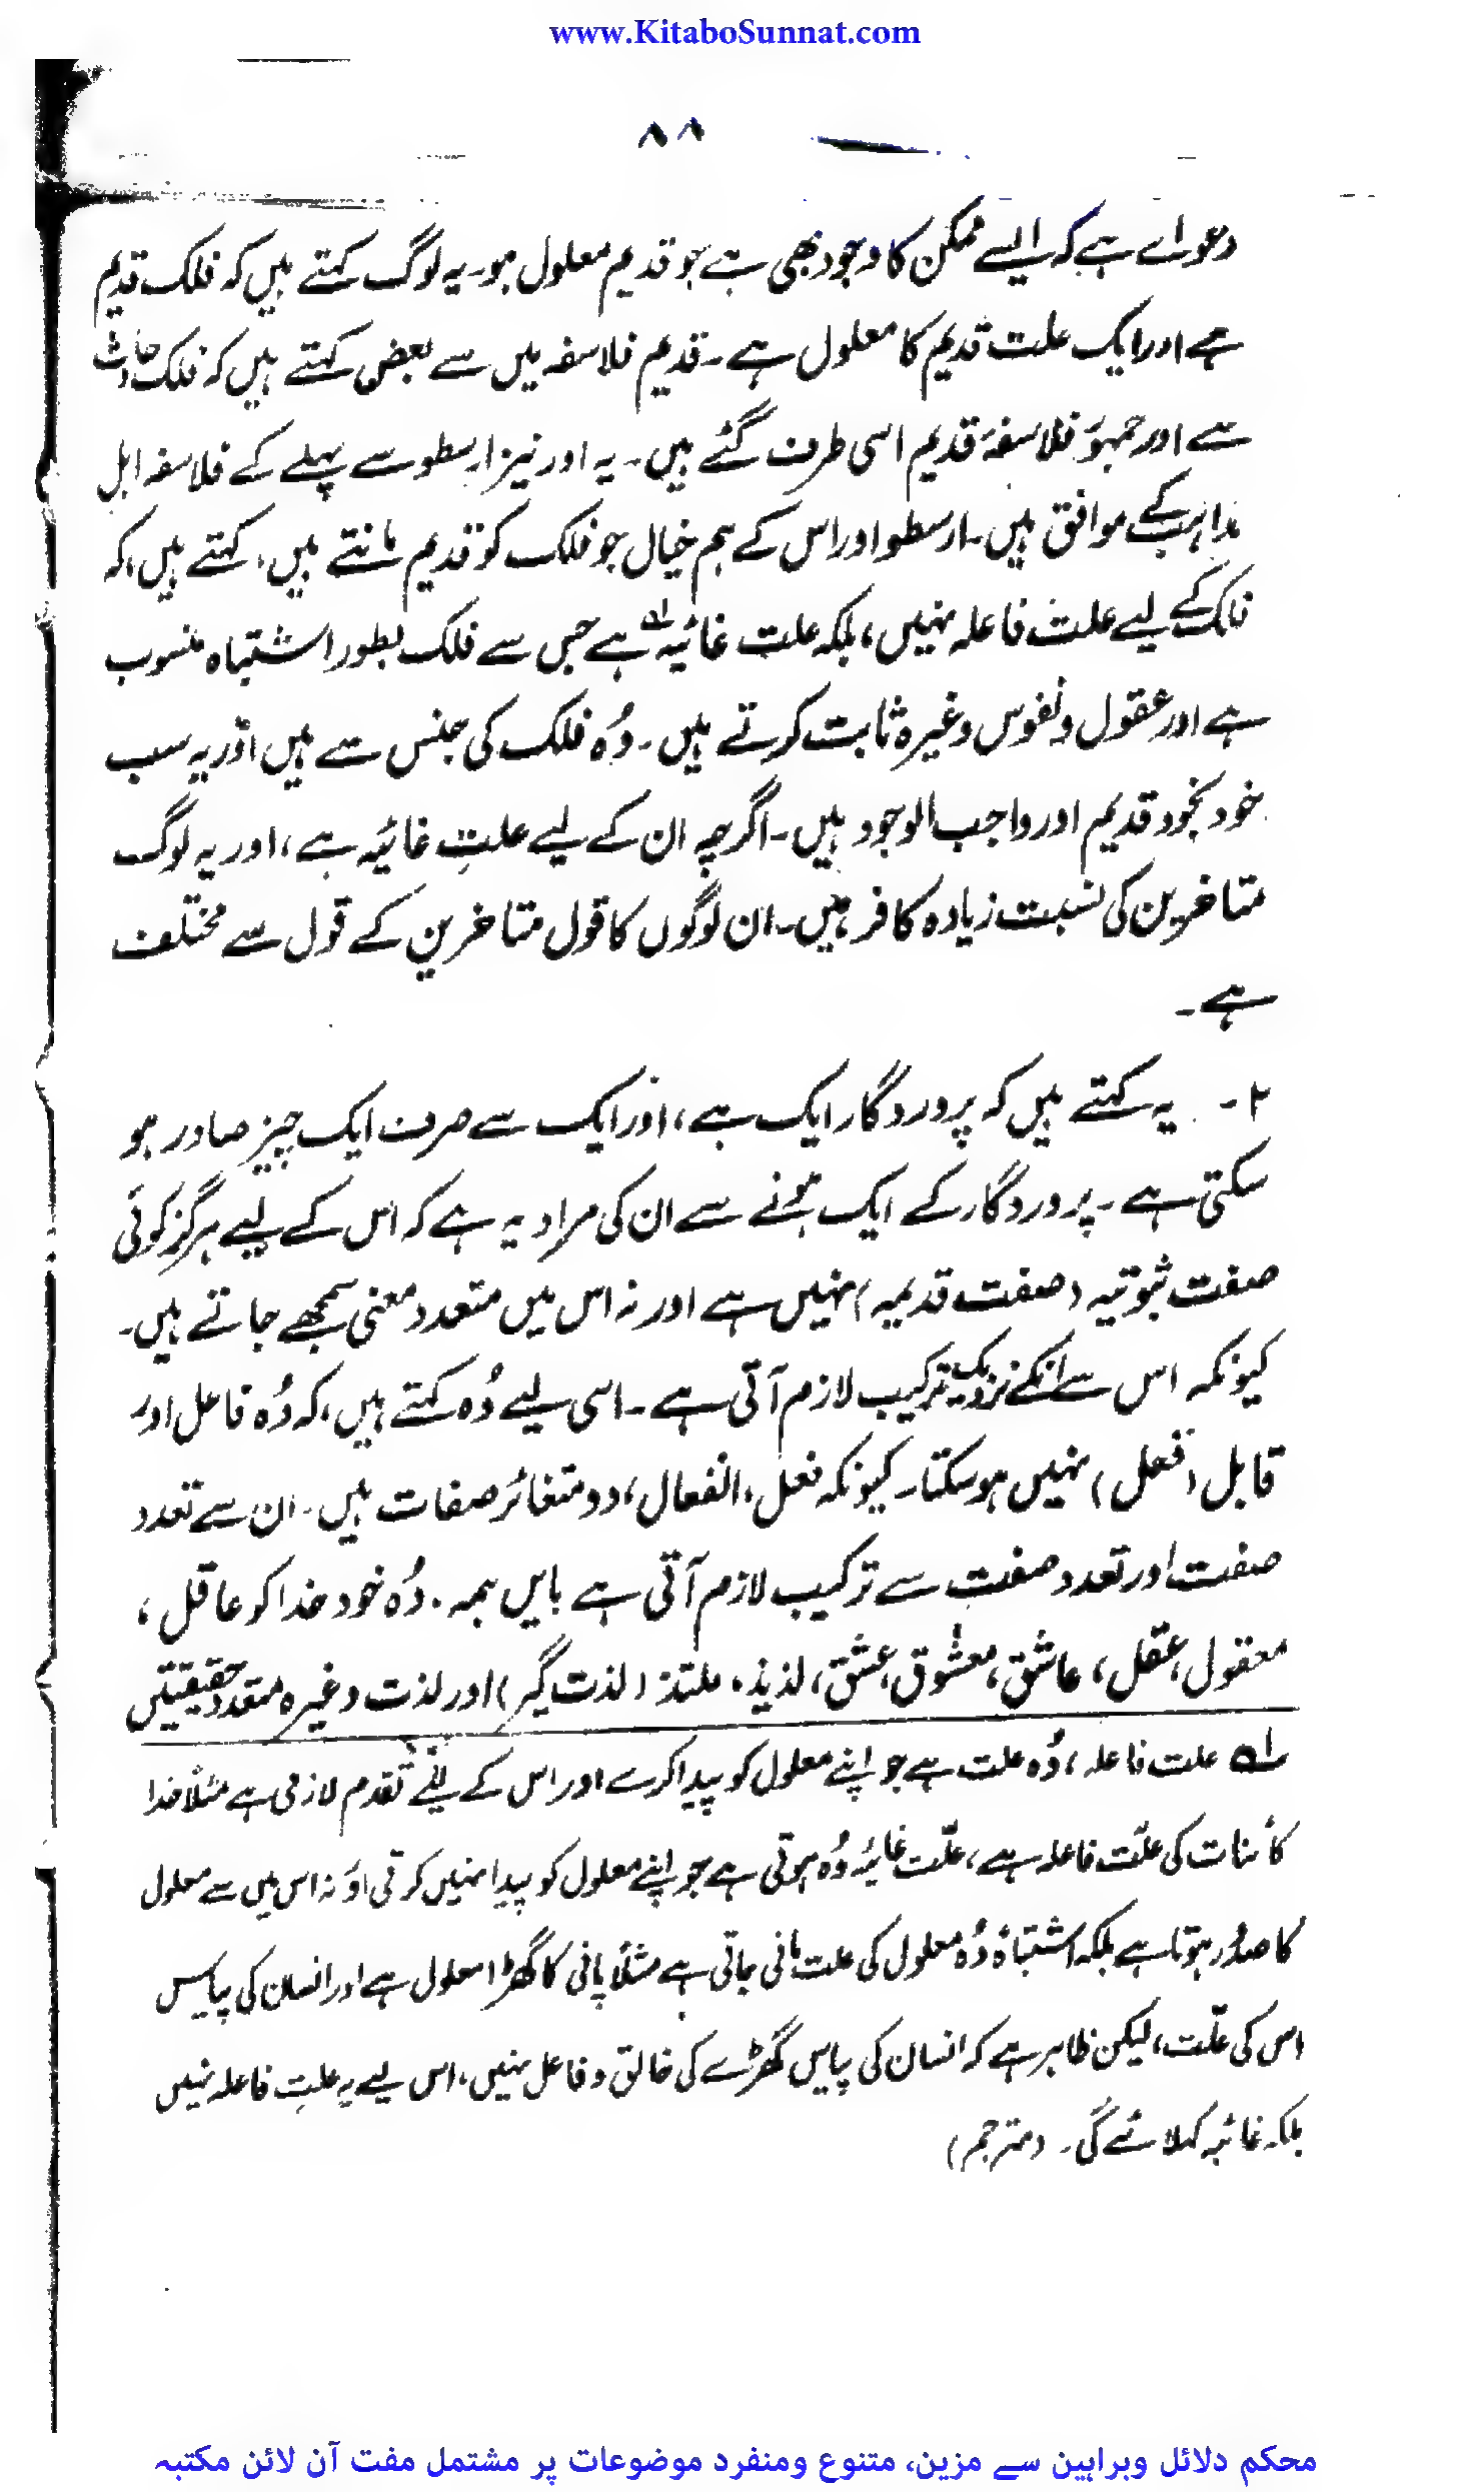 www.KitaboSunnat.com
۸۸
دعواے ہے کہ ایسے ممکن کا وجود بھی ہے جو قدیم معلول ہو۔ یہ لوگ کہتے ہیں کہ فلک قدیم
ہے اور ایک علت قدیم کا معلول ہے۔ قدیم فلاسفہ میں سے بعض کہتے ہیں کہ فلک حادث
ہے اور جمہور فلاسفۂ قدیم اسی طرف گئے ہیں۔ یہ اور نیز ارسطو سے پہلے کے فلاسفہ اہل
مذاہب کے موافق ہیں۔ ارسطو اور اس کے ہم خیال جو فلک کو قدیم مانتے ہیں، کہتے ہیں، کہ
فلک کے لیے علت فاعلہ نہیں، بلکہ علت غائیہ لہ ہے جس سے فلک بطور اشتباہ منسوب
ہے اور عقول و نفوس وغیرہ ثابت کرتے ہیں۔ وُہ فلک کی جنس سے ہیں اور یہ سب
خود بخود قدیم اور واجب الوجود ہیں۔ اگرچہ ان کے لیے علتِ غائیہ ہے، اور یہ لوگ
متاخرین کی نسبت زیادہ کافر ہیں۔ ان لوگوں کا قول متاخرین کے قول سے مختلف
ہے۔
۲۔ یہ کہتے ہیں کہ پروردگار ایک ہے، اور ایک سے صرف ایک چیز صادر ہو
سکتی ہے۔ پروردگار کے ایک ہونے سے ان کی مراد یہ ہے کہ اس کے لیے ہرگز کوئی
صفت ثبوتیہ (صفت قدیمہ) نہیں ہے اور نہ اس میں متعدد معنی سمجھے جاتے ہیں۔
کیونکہ اس سے انکے نزدیک ترکیب لازم آتی ہے۔ اسی لیے وُہ کہتے ہیں، کہ وُہ فاعل اور
قابل (فعل) نہیں ہو سکتا۔ کیونکہ فعل، انفعال، دو متغائر صفات ہیں۔ ان سے تعدد
صفت اور تعدد صفت سے ترکیب لازم آتی ہے بایں ہمہ۔ وُہ خود خدا کو عاقل،
معقول، عقل، عاشق، معشوق، عشق، لذیذ، ملتذ (لذت گیر) اور لذت وغیرہ متعدد حقیقتیں
لہ علت فاعلہ، وُہ علت ہے جو اپنے معلول کو پیدا کرے اور اس کے لئے تقدم لازمی ہے مثلاً خدا
کائنات کی علّت فاعلہ ہے، علّت غائیہ وُہ ہوتی ہے جو اپنے معلول کو پیدا نہیں کرتی اور نہ اس میں سے معلول
کا صدُور ہوتا ہے بلکہ اشتباہً وُہ معلول کی علت مانی جاتی ہے مثلاً پانی کا گھڑا معلول ہے اور انسان کی پیاس
اس کی علّت، لیکن ظاہر ہے کہ انسان کی پیاس گھڑے کی خالق و فاعل نہیں، اس لیے یہ علت فاعلہ نہیں
بلکہ غائیہ کہلائے گی۔ (مترجم)
محکم دلائل وبراہین سے مزین، متنوع ومنفرد موضوعات پر مشتمل مفت آن لائن مکتبہ